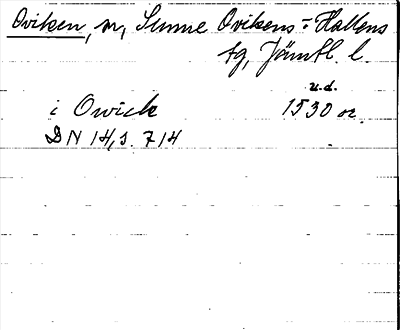 Oviken, m, Sunne Ovikens o Hallens
tg, Jämtl. l.
u.d.
i Owick 1530 or.
DN 14, s. 714